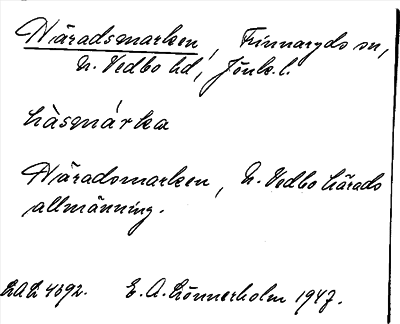 Häradsmarken, Frinnaryds sn,
N. Vedbo hd, Jönk. l.
hàsmárka
Häradsmarken, N. Vedbo härads
allmänning.
LAL 4692. E. A. Lönnerholm 1947.